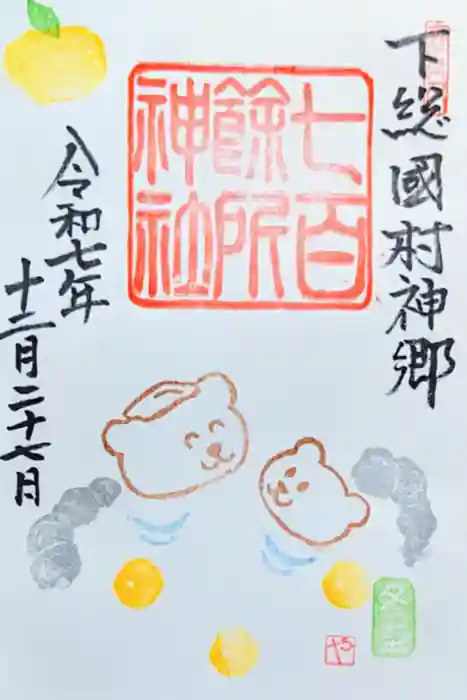 下総國村神郷
七百
餘所
神社
令和七年
十二月二十七日
冬至